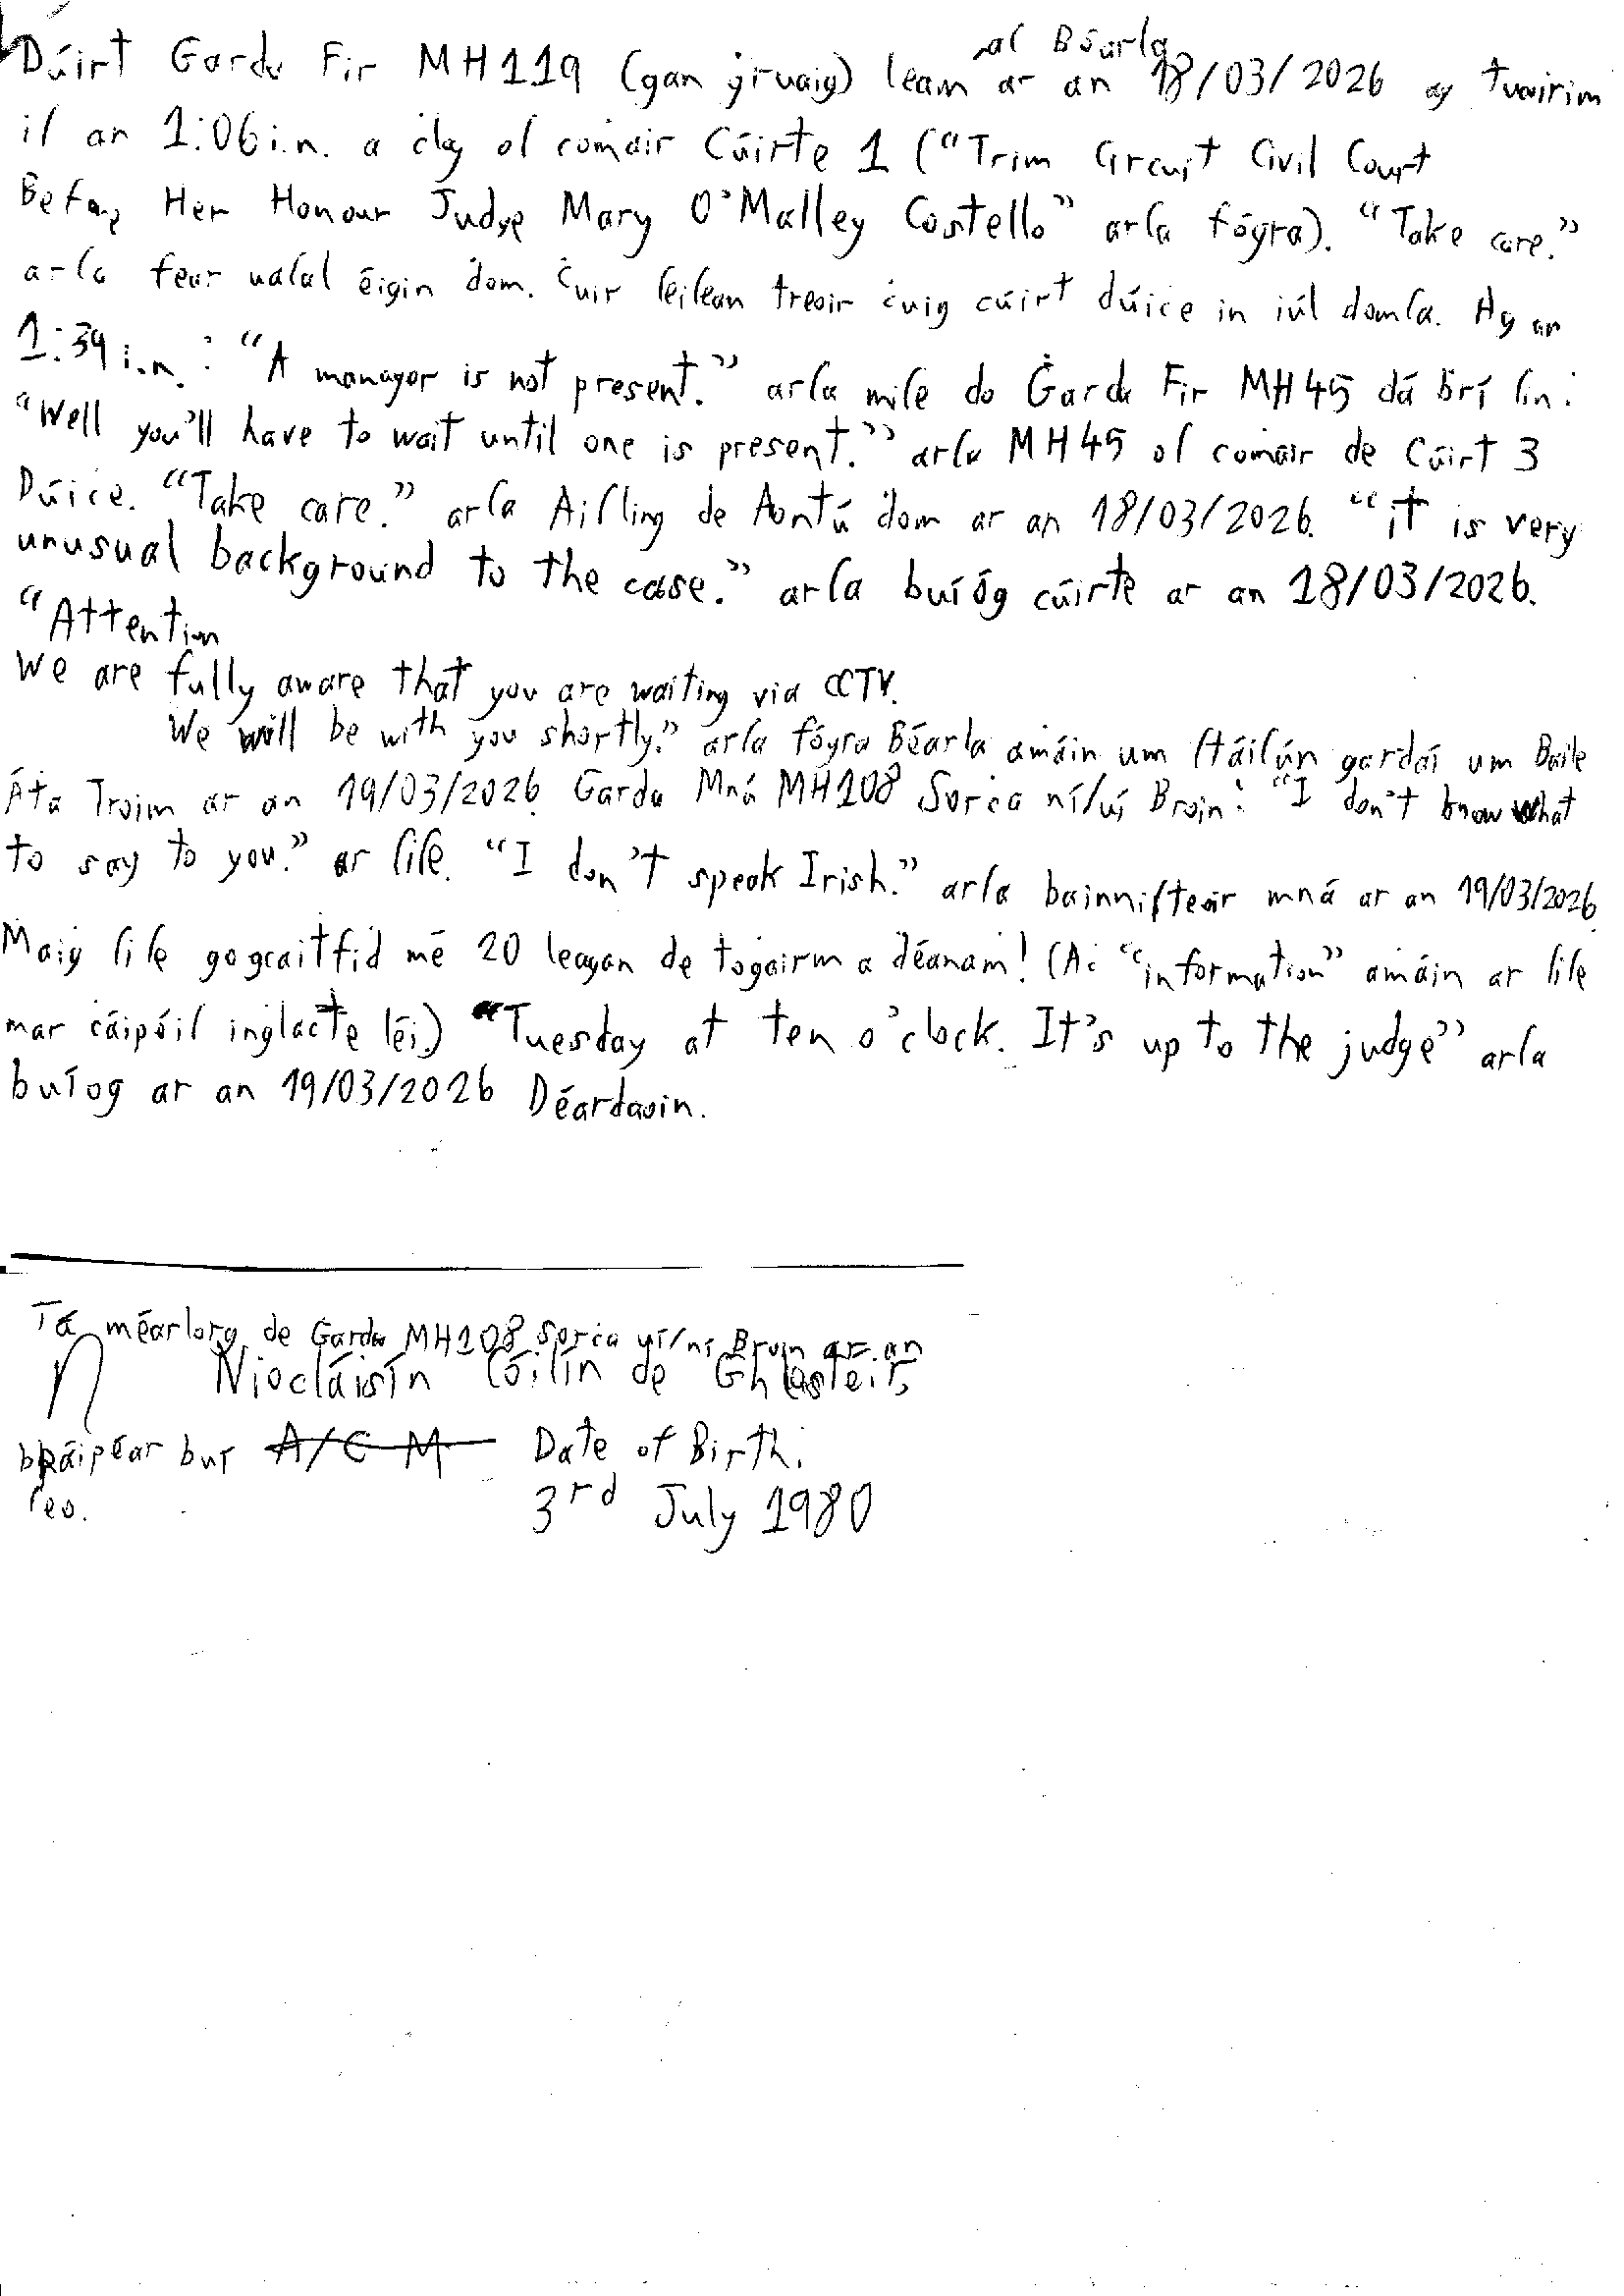 as Béarla
Dúirt Garda Fir MH119 (gan ġruaig) leam ar an 18/03/2026 ag tuairim
is an 1:06 i.n. a ċlog os comair Cúirte 1 (“Trim Circuit Civil Court
Before Her Honour Judge Mary O’Malley Costello” arsa fógra). “Take care.”
arsa fear uasal éigin dom. Ċuir seisean treoir ċuig cúirt dúiċe in iúl domsa. Ag an
1:39 i.n.: “A manager is not present.” arsa mise do Ġarda Fir MH45 dá ḃrí sin:
“Well you’ll have to wait until one is present.” arsa MH45 os comair de Cúirt 3
Dúiċe. “Take care.” arsa Aisling de Aontú dom ar an 18/03/2026. “it is very
unusual background to the case.” arsa buíóg cúirte ar an 18/03/2026.
“Attention
We are fully aware that you are waiting via CCTV.
We will be with you shortly.” arsa fógra Béarla amáin um stáisiún gardaí um Baile
Áṫa Troim ar an 19/03/2026. Garda Mná MH108 Sorċa ní/uí Broin: “I don’t know what
to say to you.” ar sise. “I don’t speak Irish.” arsa bainnisteoir mná ar an 19/03/2026.
Maíġ sise go gcaiṫfid mé 20 leagan de togairm a ḋéanaṁ! (Aċ “information” amáin ar sise
mar cáipéis inglacṫe léi.) “Tuesday at ten o’clock. It’s up to the judge” arsa
buíog ar an 19/03/2026 Déardaoin.
Tá méarlorg de Garda MH108 Sorċa uí/ní Broin ar an
Niocláisín Cóilín de Ghlostéir,
bpáipéar buí A/C M Date of Birth:
seo. 3rd July 1980